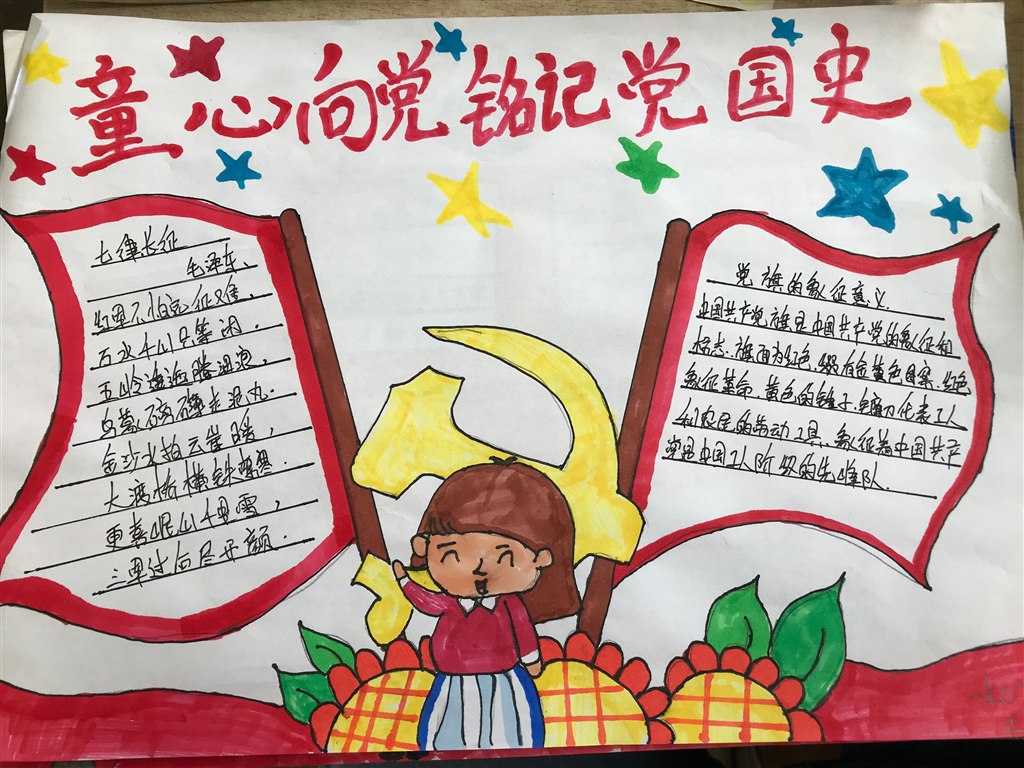 童心向党铭记党国史
七律长征
毛泽东
红军不怕远征难,
万水千山只等闲.
五岭逶迤腾细浪,
乌蒙磅礴走泥丸.
金沙水拍云崖暖,
大渡桥横铁索寒.
更喜岷山千里雪,
三军过后尽开颜.
党旗的象征意义
中国共产党党旗是中国共产党的象征和
标志.旗面为红色,缀有金黄色图案.红色
象征革命.黄色的锤子.镰刀代表工人
和农民的劳动工具.象征着中国共产
党是中国工人阶级的先锋队.